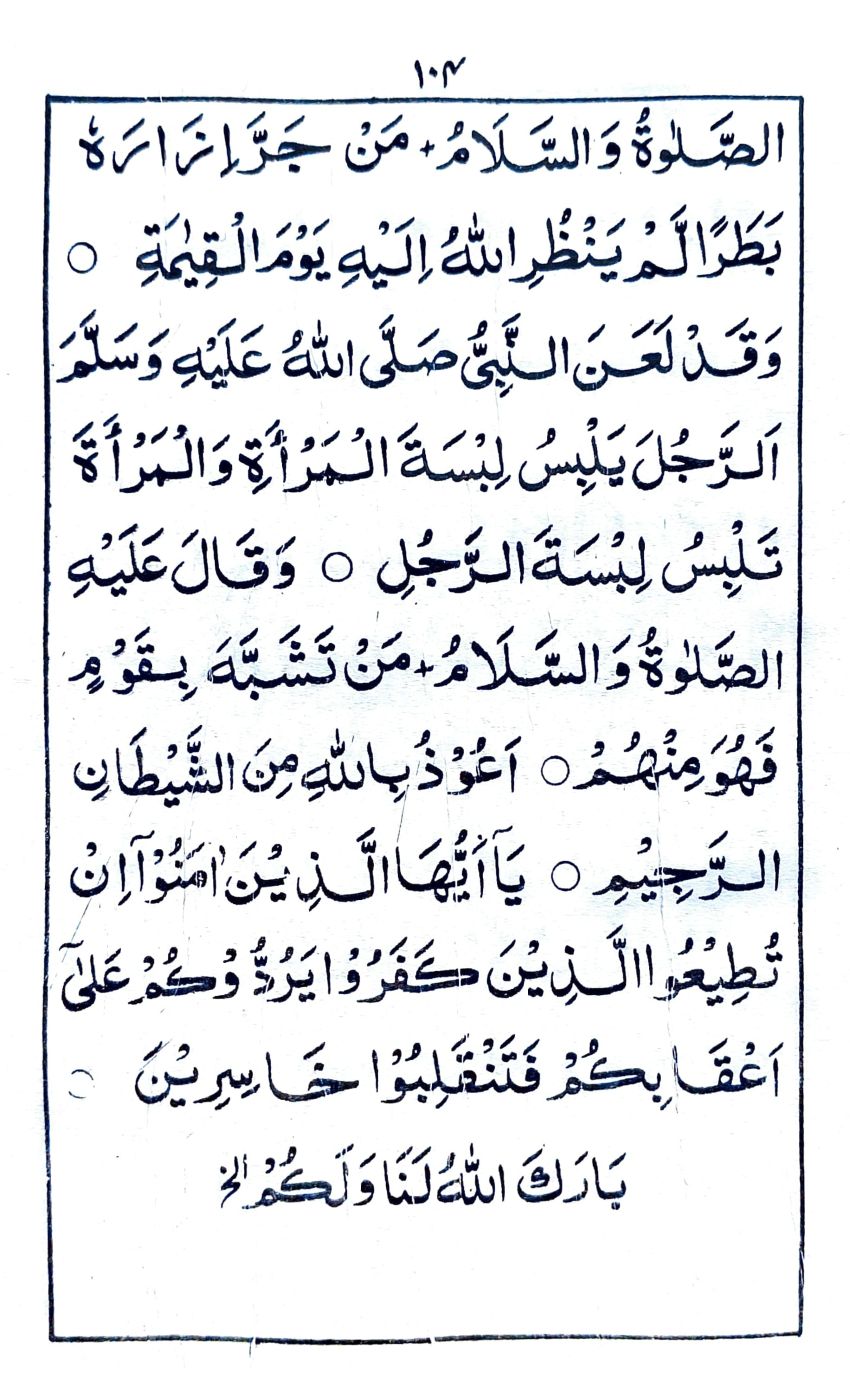 ١٠٤
الصَّلٰوةُ وَالسَّلَامُ، مَنْ جَرَّ اِزَارَهٗ
بَطَرًا لَّمْ يَنْظُرِ اللّٰهُ اِلَيْهِ يَوْمَ الْقِيٰمَةِ ○
وَقَدْ لَعَنَ النَّبِيُّ صَلَّى اللّٰهُ عَلَيْهِ وَسَلَّمَ
اَلرَّجُلَ يَلْبِسُ لِبْسَةَ الْمَرْأَةِ وَالْمَرْأَةَ
تَلْبِسُ لِبْسَةَ الرَّجُلِ ○ وَقَالَ عَلَيْهِ
الصَّلٰوةُ وَالسَّلَامُ، مَنْ تَشَبَّهَ بِقَوْمٍ
فَهُوَ مِنْهُمْ ○ اَعُوْذُ بِاللّٰهِ مِنَ الشَّيْطَانِ
الرَّجِيْمِ ○ يَآ أَيُّهَا الَّذِيْنَ اٰمَنُوْآ اِنْ
تُطِيْعُوا الَّذِيْنَ كَفَرُوْا يَرُدُّوْكُمْ عَلٰٓى
اَعْقَابِكُمْ فَتَنْقَلِبُوْا خَاسِرِيْنَ ○
بَارَكَ اللّٰهُ لَنَا وَلَكُمْ الخ